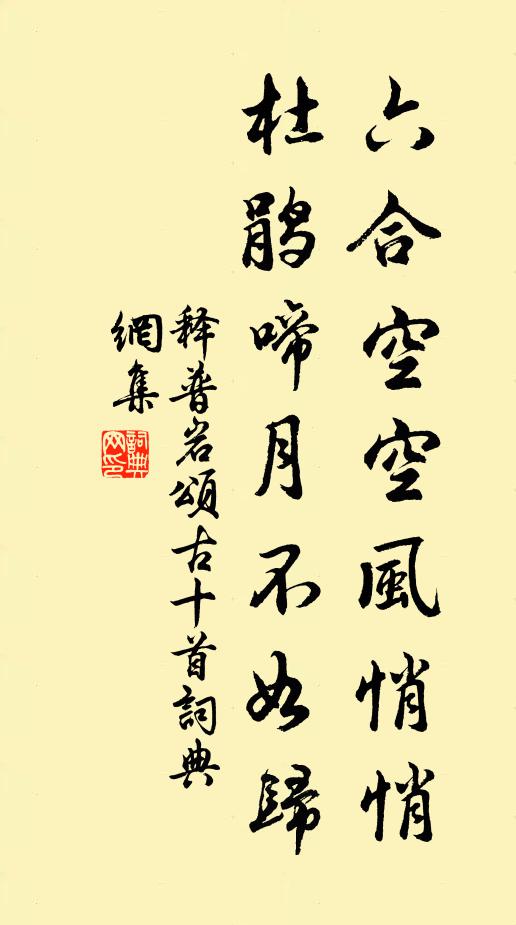 六合空空風悄悄
杜鹃啼月不如歸
释普岩頌古十首詞典
網集
詞典
网印